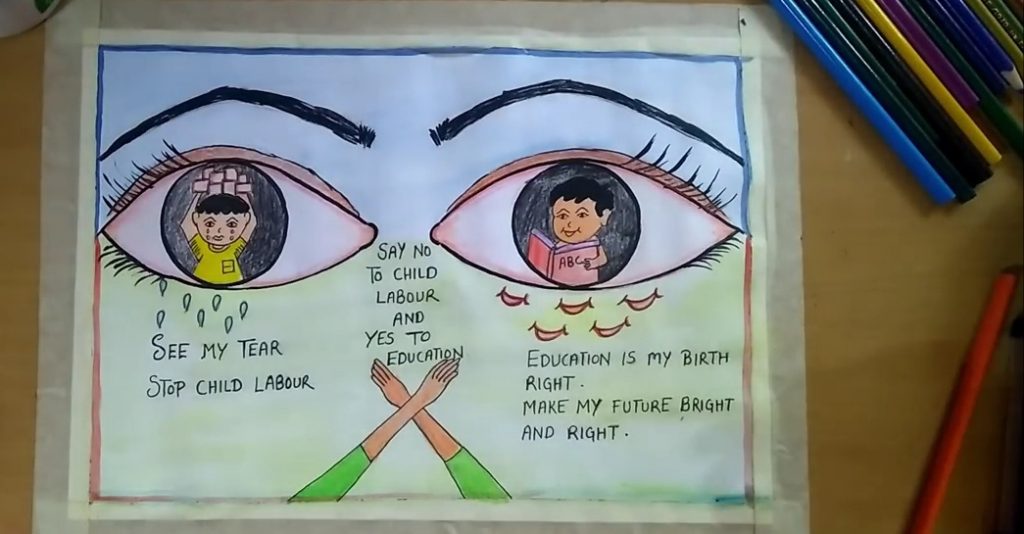 SAY NO
TO CHILD
LABOUR
AND
YES TO
EDUCATION
SEE MY TEAR
STOP CHILD LABOUR
ABC
EDUCATION IS MY BIRTH
RIGHT.
MAKE MY FUTURE BRIGHT
AND RIGHT.